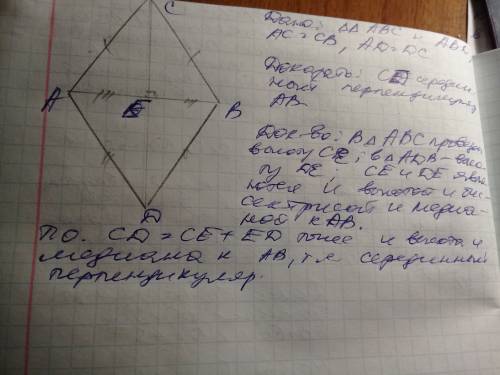 C
Дано: ΔΔ ABC и ABD,
AC = CB, AD = DC
Доказать: CE середин.
ный перпендикуляр
AB.
A
E
B
D
Док-во: В Δ ABC проведем
высоту CE, в ΔADB - высо-
ту DE. CE и DE явля-
ются и высотой и бис-
сектрисой и медиа-
ной к AB.
Т.О. CD = CE + ED тоже и высота и
медиана к AB, т.е. серединный
перпендикуляр.